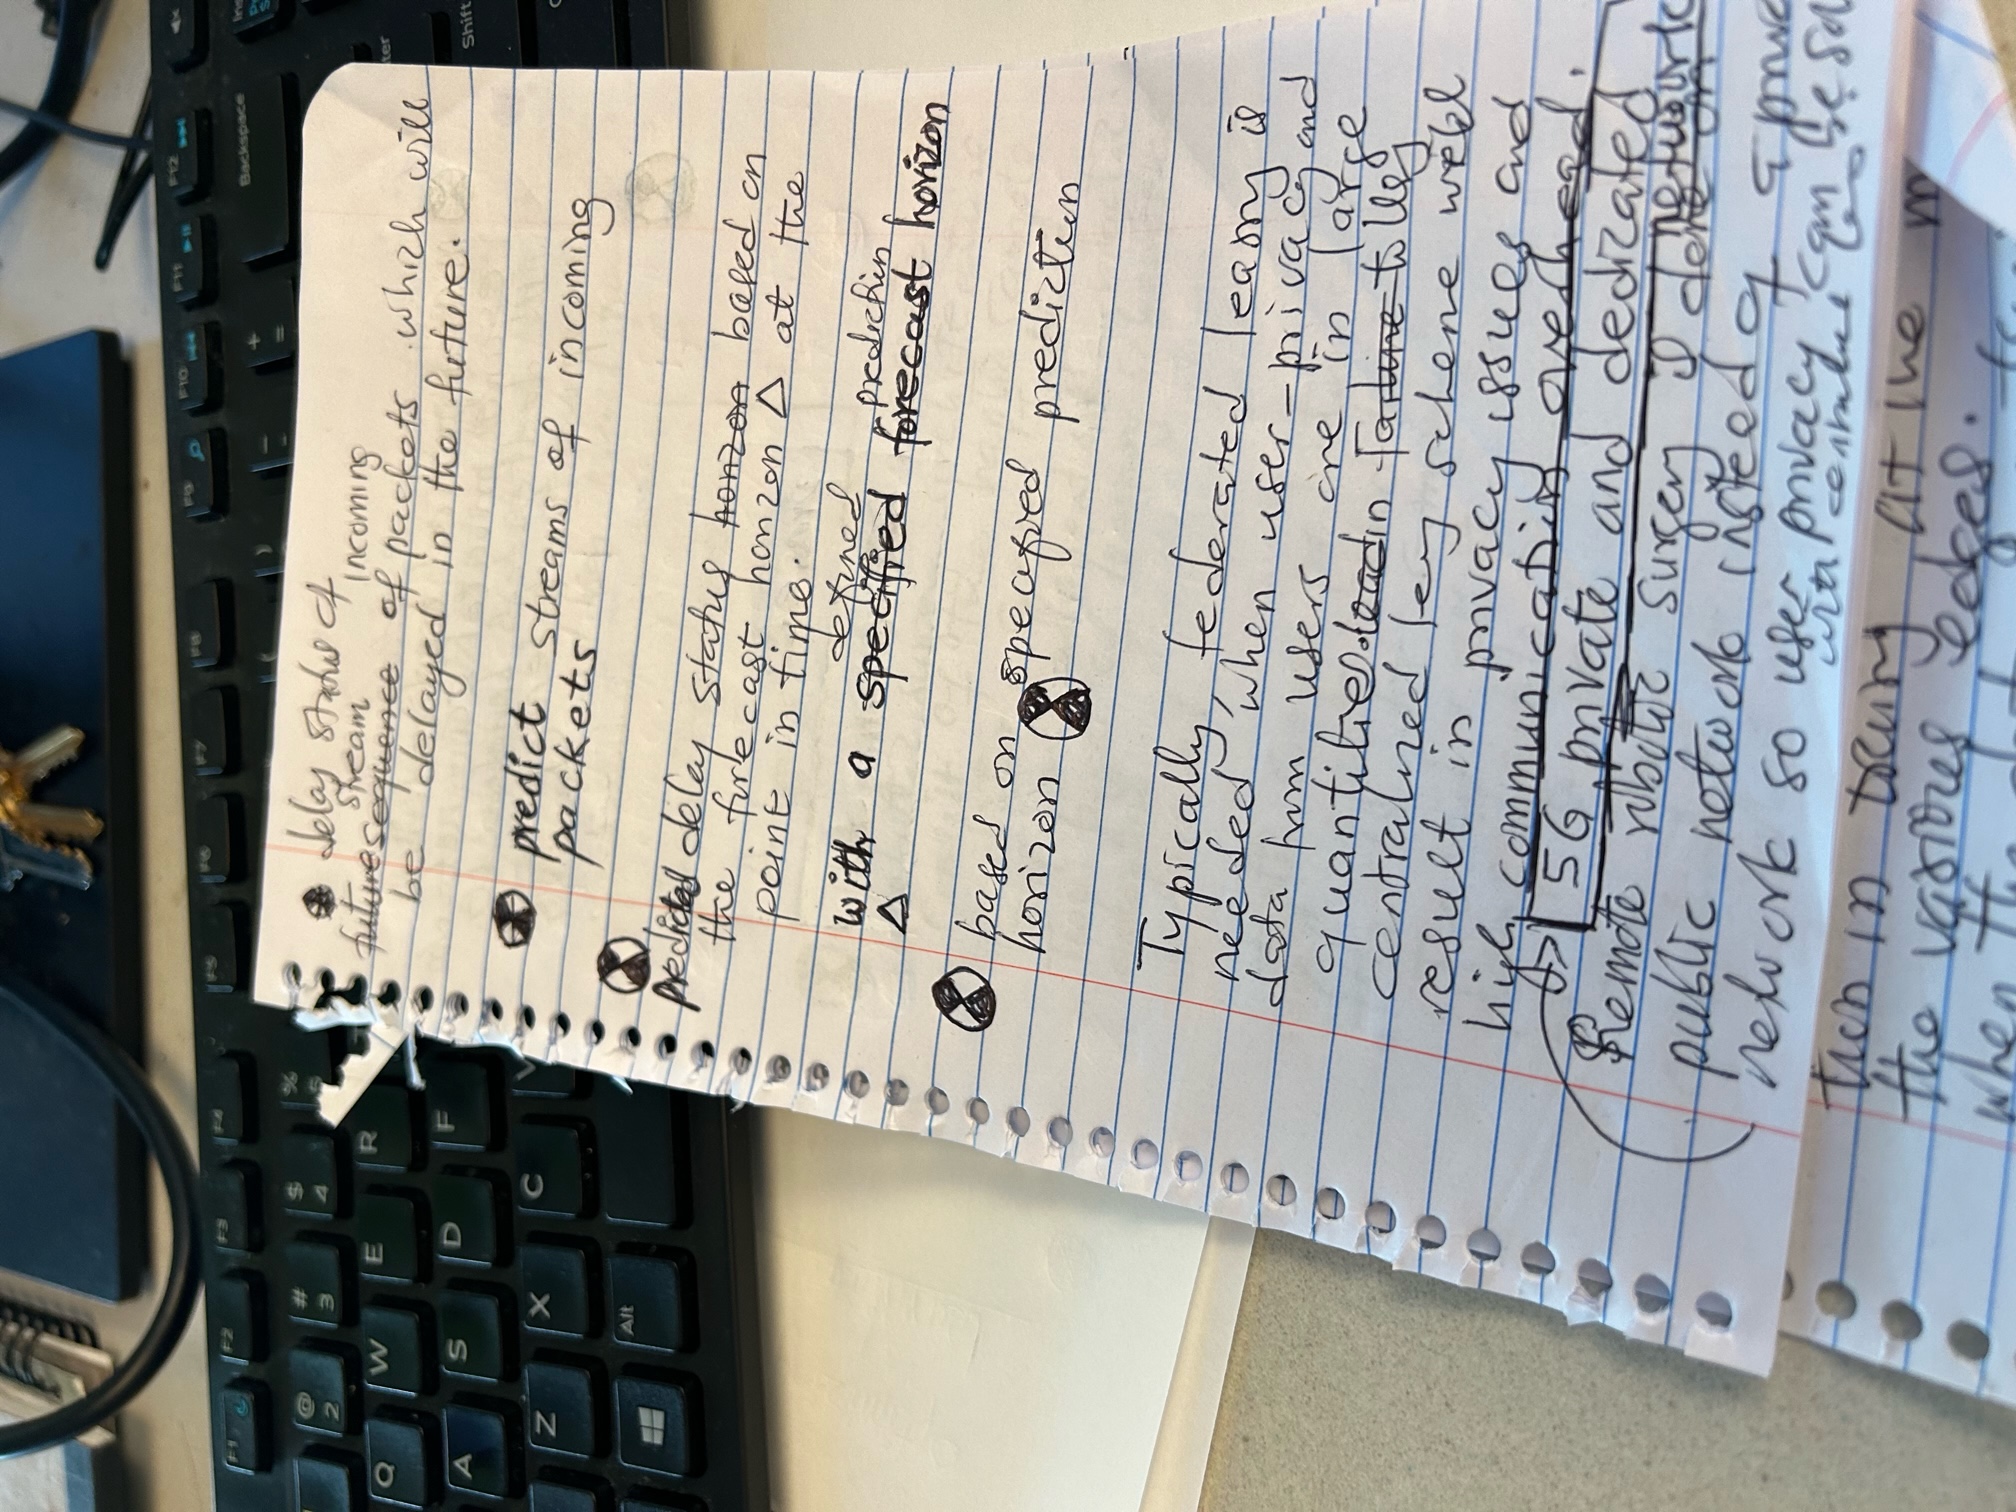 F1 F2 F3 F4 F5 F6 F7 F8 F9 F10 F11 F12
@ 2 # 3 $ 4 % ( ) - + = Backspace
Q W E R
A S D F Shift
Z X C V
Alt
delay status of
stream incoming
future sequence of packets which will
be delayed in the future.
predict streams of incoming
packets
predicted delay status horizon based on
the forecast horizon Δ at the
point in time.
defined prediction
with a specified forecast horizon
Δ
based on specified prediction
horizon
Typically, federated learning is
needed when user-privacy and
data from users are in large
quantities. lead in Failure to
centralized scheme will
result in privacy issues and
high communication overhead.
5G private and dedicated
network
Remote robotic surgery is done on
public network instead of a
network so user privacy can be
with
tion in at the
the various edges.
when the